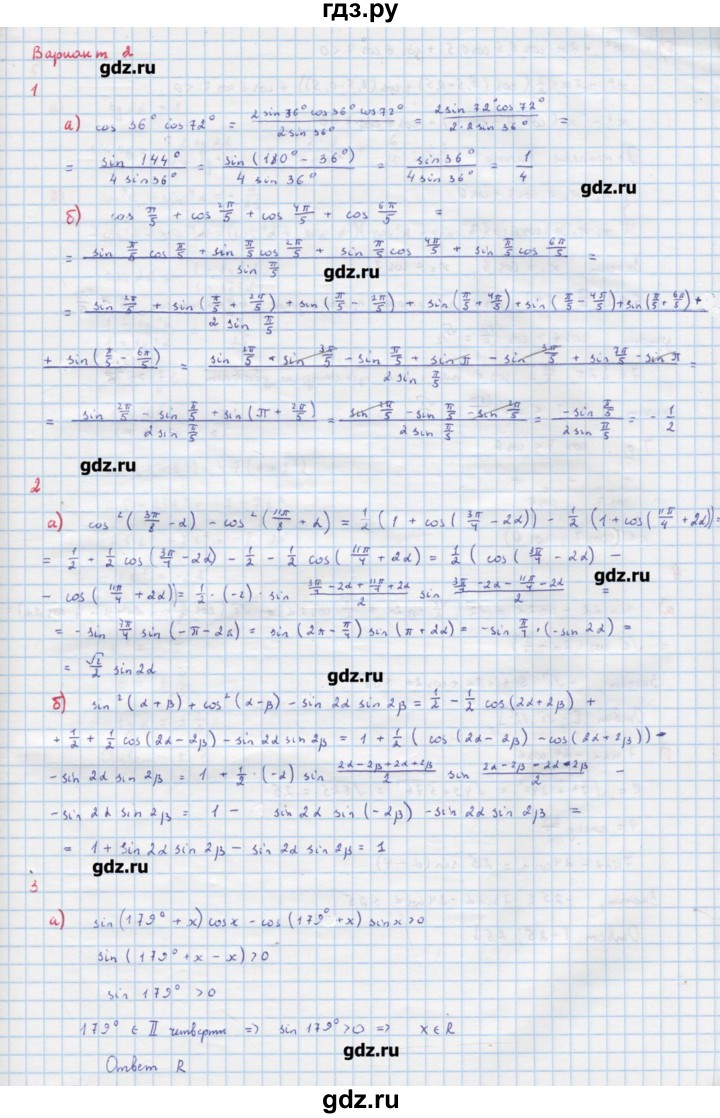 гдз.ру
Вариант 2
gdz.ru
1
а) cos 36° cos 72° = (2 sin 36° cos 36° cos 72°)/(2 sin 36°) = (2 sin 72° cos 72°)/(2·2 sin 36°) =
= sin 144°/(4 sin 36°) = sin(180° - 36°)/(4 sin 36°) = sin 36°/(4 sin 36°) = 1/4
gdz.ru
б) cos π/5 + cos 2π/5 + cos 4π/5 + cos 6π/5 =
= (sin π/5 cos π/5 + sin π/5 cos 2π/5 + sin π/5 cos 4π/5 + sin π/5 cos 6π/5)/(sin π/5) =
gdz.ru
= (sin 2π/5 + sin(π/5 + 2π/5) + sin(π/5 - 2π/5) + sin(π/5 + 4π/5) + sin(π/5 - 4π/5) + sin(π/5 + 6π/5) +)/(2 sin π/5)
+ sin(π/5 - 6π/5) = (sin 2π/5 + sin 3π/5 - sin π/5 + sin π - sin 3π/5 + sin 7π/5 - sin π)/(2 sin π/5) =
= (sin 2π/5 - sin π/5 + sin(π + 2π/5))/(2 sin π/5) = (sin 2π/5 - sin π/5 - sin 2π/5)/(2 sin π/5) = (-sin π/5)/(2 sin π/5) = - 1/2
gdz.ru
2
а) cos²(3π/8 - α) - cos²(11π/8 + α) = 1/2 (1 + cos(3π/4 - 2α)) - 1/2 (1 + cos(11π/4 + 2α)) =
= 1/2 + 1/2 cos(3π/4 - 2α) - 1/2 - 1/2 cos(11π/4 + 2α) = 1/2 (cos(3π/4 - 2α) -
gdz.ru
- cos(11π/4 + 2α)) = 1/2 · (-2) · sin (3π/4 - 2α + 11π/4 + 2α)/2 sin (3π/4 - 2α - 11π/4 - 2α)/2 =
= - sin 7π/4 sin(-π - 2α) = sin(2π - π/4) sin(π + 2α) = - sin π/4 · (- sin 2α) =
= √2/2 sin 2α
gdz.ru
б) sin²(α + β) + cos²(α - β) - sin 2α sin 2β = 1/2 - 1/2 cos(2α + 2β) +
+ 1/2 + 1/2 cos(2α - 2β) - sin 2α sin 2β = 1 + 1/2 (cos(2α - 2β) - cos(2α + 2β)) -
gdz.ru
- sin 2α sin 2β = 1 + 1/2 · (-2) sin (2α - 2β + 2α + 2β)/2 sin (2α - 2β - 2α - 2β)/2 -
- sin 2α sin 2β = 1 - sin 2α sin(-2β) - sin 2α sin 2β =
= 1 + sin 2α sin 2β - sin 2α sin 2β = 1
gdz.ru
3
а) sin(179° + x) cos x - cos(179° + x) sin x > 0
gdz.ru
sin(179° + x - x) > 0
sin 179° > 0
179° ∈ II четверти => sin 179° > 0 => x ∈ R
gdz.ru
Ответ R
гдз.ру